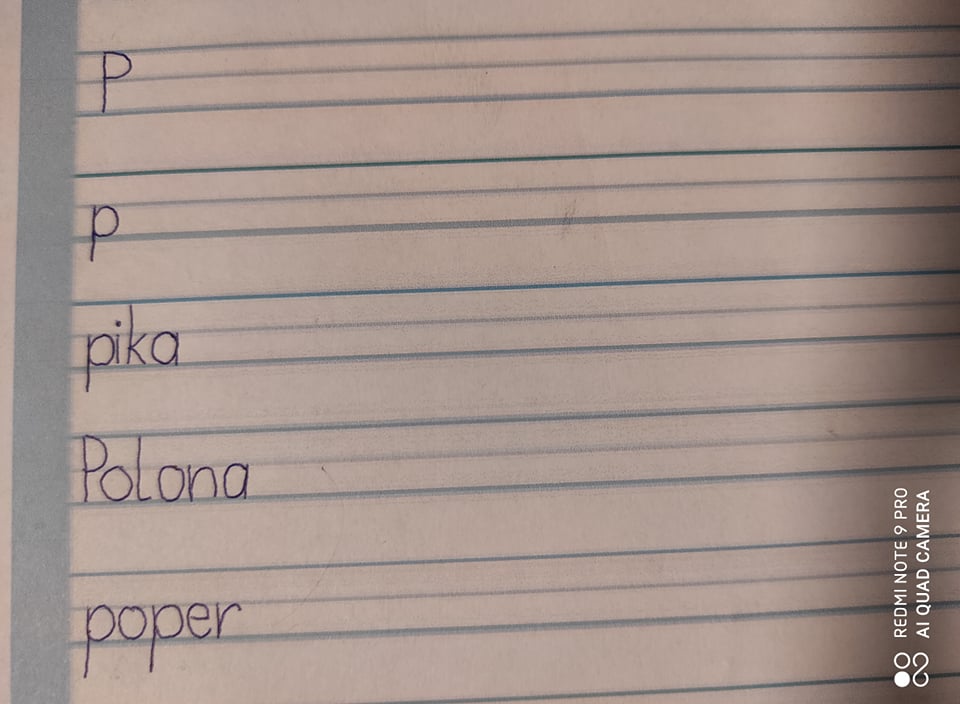 P
p
pika
Polona
poper
REDMI NOTE 9 PRO
AI QUAD CAMERA